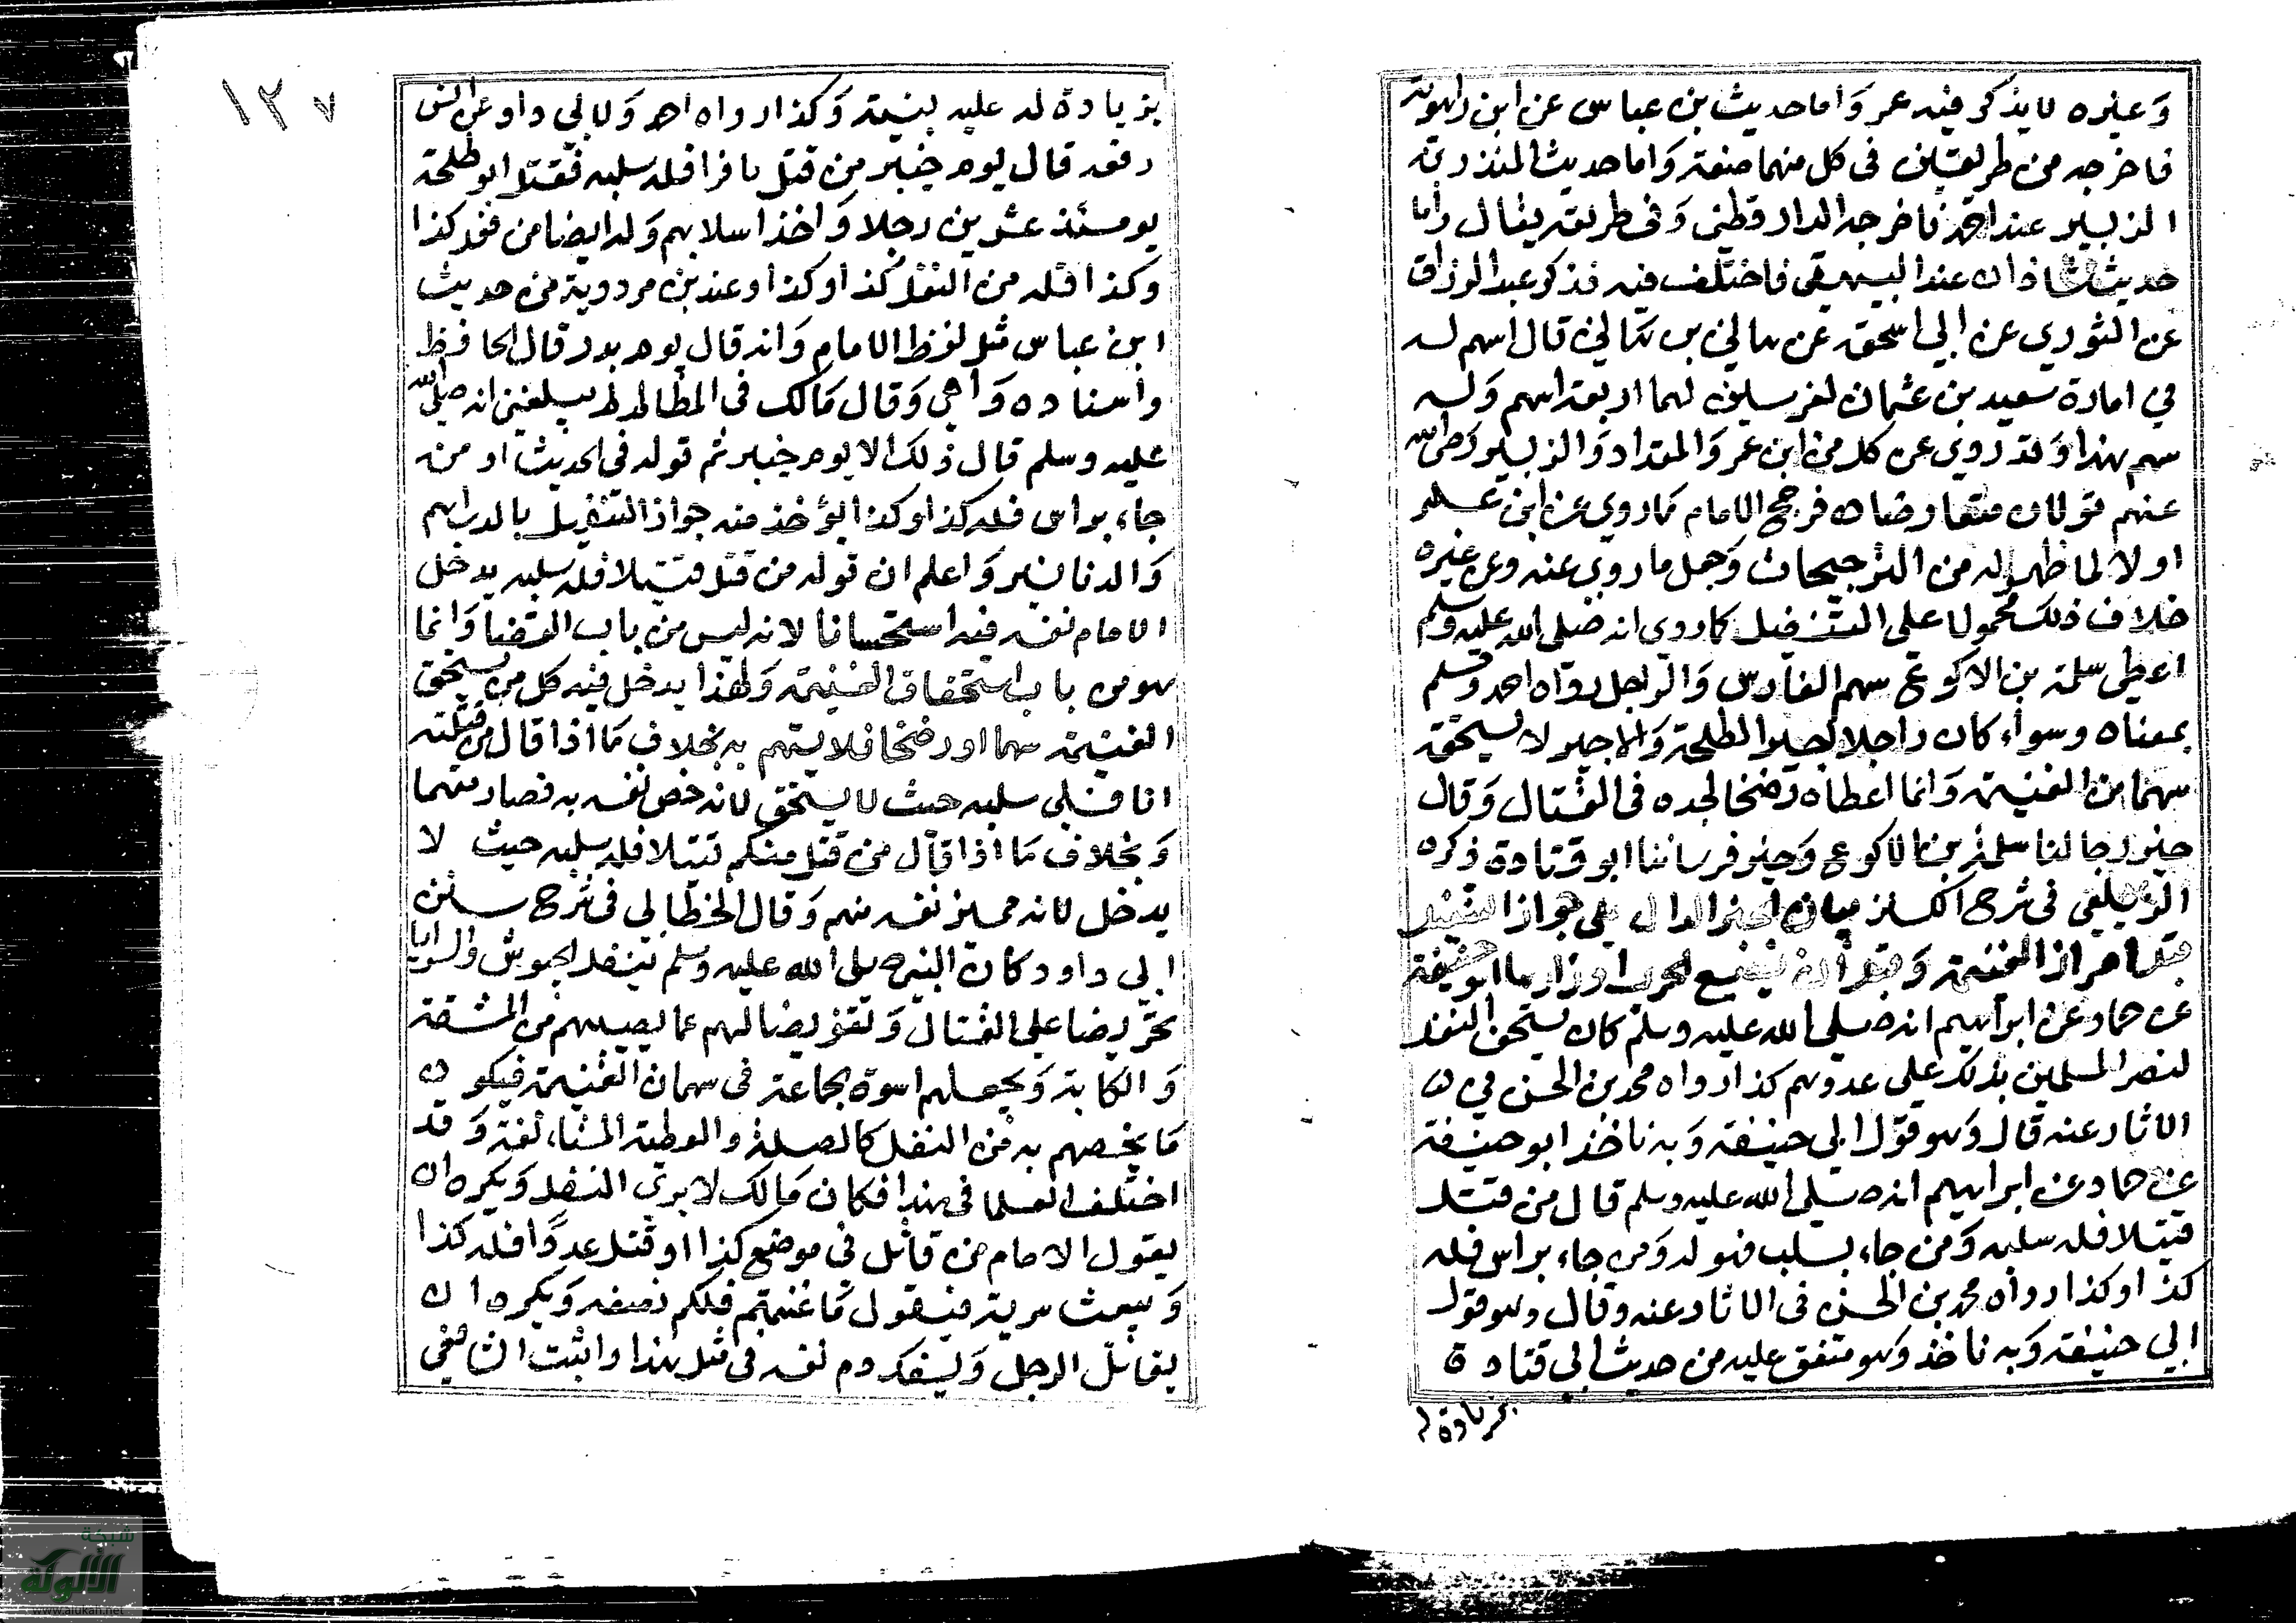 وغيره لا يذكر فيه عمر واما حديث بن عباس عن ابن راهوية
فاخرجه من طريقين في كل منهما ضعف واما حديث المنذر بن
الزبير عند احمد فاخرجه الدارقطني وفي طريقه يقال واما
حديث شاذان عند البيهقي فاختلف فيه فذكر عبد الرزاق
عن الثوري عن ابي اسحق عن هاني بن هاني قال اسهم له
في امارة سعيد بن عثمان لفرسين لهما اربعة اسهم وله
سهم هذا وقد روي عن كل من ابن عمر والمقداد والزبير رضي الله
عنهم قولان متعارضان فرجح الامام ما روي عن ابن عمر
اولا لما ظهر له من الترجيحات وحمل ما روي عنه وعن غيره
خلاف ذلك محمولا على التنفيل كما روي انه صلى الله عليه وسلم
اعطى سلمة بن الاكوع سهم الفارس والراجل رواه احمد ومسلم
بمعناه وسواء كان راجلا اجيرا لطلحة والاجير لا يستحق
سهما من الغنيمة وانما اعطاه رضخا لجده في القتال وقال
خير رجالنا سلمة بن الاكوع وخير فرساننا ابو قتادة ذكره
الزيلعي في شرح الكنز بيان الخبر الدال على جواز التنفيل
قبل احراز الغنيمة وقبل ان تضع الحرب اوزارها ابو حنيفة
عن حماد عن ابراهيم انه صلى الله عليه وسلم كان يستحق النفل
لنصر المسلمين بذلك على عدوهم كذا رواه محمد بن الحسن في
الاثار عنه قال وهو قول ابي حنيفة وبه ناخذ ابو حنيفة
عن حماد عن ابراهيم انه صلى الله عليه وسلم قال من قتل
قتيلا فله سلبه ومن جاء بسلب فهو له ومن جاء براس فله
كذا وكذا رواه محمد بن الحسن في الاثار عنه وقال وهو قول
ابي حنيفة وبه ناخذ وهو متفق عليه من حديث ابي قتادة
بزيادة ل
١٢٧
بزيادة له عليه بينة وكذا رواه احمد ولابي داود عن انس
رفعه قال يوم خيبر من قتل كافرا فله سلبه فقتل ابو طلحة
يومئذ عشرين رجلا واخذ اسلابهم وله ايضا من فعل كذا
وكذا فله من النفل كذا وكذا وعند بن مردوية من حديث
ابن عباس مثل لفظ الامام وانه قال يوم بدر قال الحافظ
واسناده واهي وقال مالك في الموطا لم يبلغني انه صلى الله
عليه وسلم قال ذلك الا يوم خيبر ثم قوله في الحديث او من
جاء براس فله كذا وكذا يؤخذ منه جواز التنفيل بالدراهم
والدنانير واعلم ان قوله من قتل قتيلا فله سلبه يدخل
الامام نفسه فيه استحسانا لانه ليس من باب القضا وانما
هو من باب استحقاق الغنيمة ولهذا يدخل فيه كل من يستحق
الغنيمة سهما او رضخا فلا يتهم به بخلاف ما اذا قال من قتلته
انا فلي سلبه حيث لا يستحق لانه خص نفسه به فصار متهما
وبخلاف ما اذا قال من قتل منكم قتيلا فله سلبه حيث لا
يدخل لانه مميز نفسه منهم وقال الخطابي في شرح سنن
ابي داود كان النبي صلى الله عليه وسلم ينفل الجيوش والسرايا
تحريضا على القتال وتعويضا لهم عما يصيبهم من المشقة
والكابة ويجعلهم اسوة الجماعة في سهمان الغنيمة فيكون
ما يخصهم به من النفل كالصلة والعطية المستانفة وقد
اختلف العلما في هذا فكان مالك لا يرى النفل ويكره ان
يقول الامام من قاتل في موضع كذا او قتل عدوا فله كذا
ويبعث سرية فيقول ما غنمتم فلكم نصفه ويكره ان
يقاتل الرجل ويسفك دم نفسه في مثل هذا واثبت الشافعي
شبكة
الألوكة
www.alukah.net